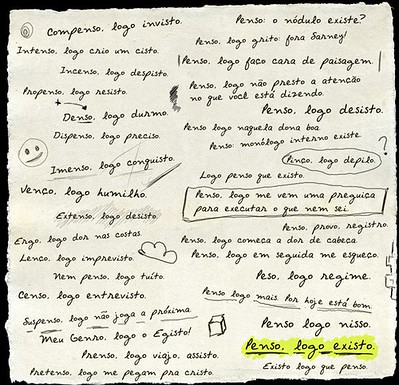 Compenso, logo invisto.
Intenso, logo crio um cisto.
Incenso, logo despisto.
Propenso, logo resisto.
Denso, logo durmo.
Dispenso, logo preciso.
Imenso, logo conquisto.
Venço, logo humilho.
Extenso, logo desisto.
Ergo, logo dor nas costas.
Lenço, logo imprevisto.
Nem penso, logo tuíto.
Censo, logo entrevisto.
Suspenso, logo não joga a próxima.
Meu Genro, logo o Egisto!
Prenso, logo viajo, assisto.
Pretenso, logo me pegam pra cristo.
Penso: o nódulo existe?
Penso, logo grito: fora Sarney!
Penso, logo faco cara de paisagem.
Penso, logo não presto a atenção
no que você está dizendo.
Penso, logo desisto.
Penso logo naquela dona boa.
Penso: monólogo interno existe
?
Penco, logo depilo.
Logo penso que existo.
Penso, logo me vem uma preguiça
para executar o que nem sei.
Penso, provo, registro.
Penso, logo começa a dor de cabeça.
Penso, logo em seguida me esqueço.
Peso, logo regime.
Penso logo mais. Por hoje está bom.
Penso logo nisso.
Penso, logo existo.
Existo logo que penso.